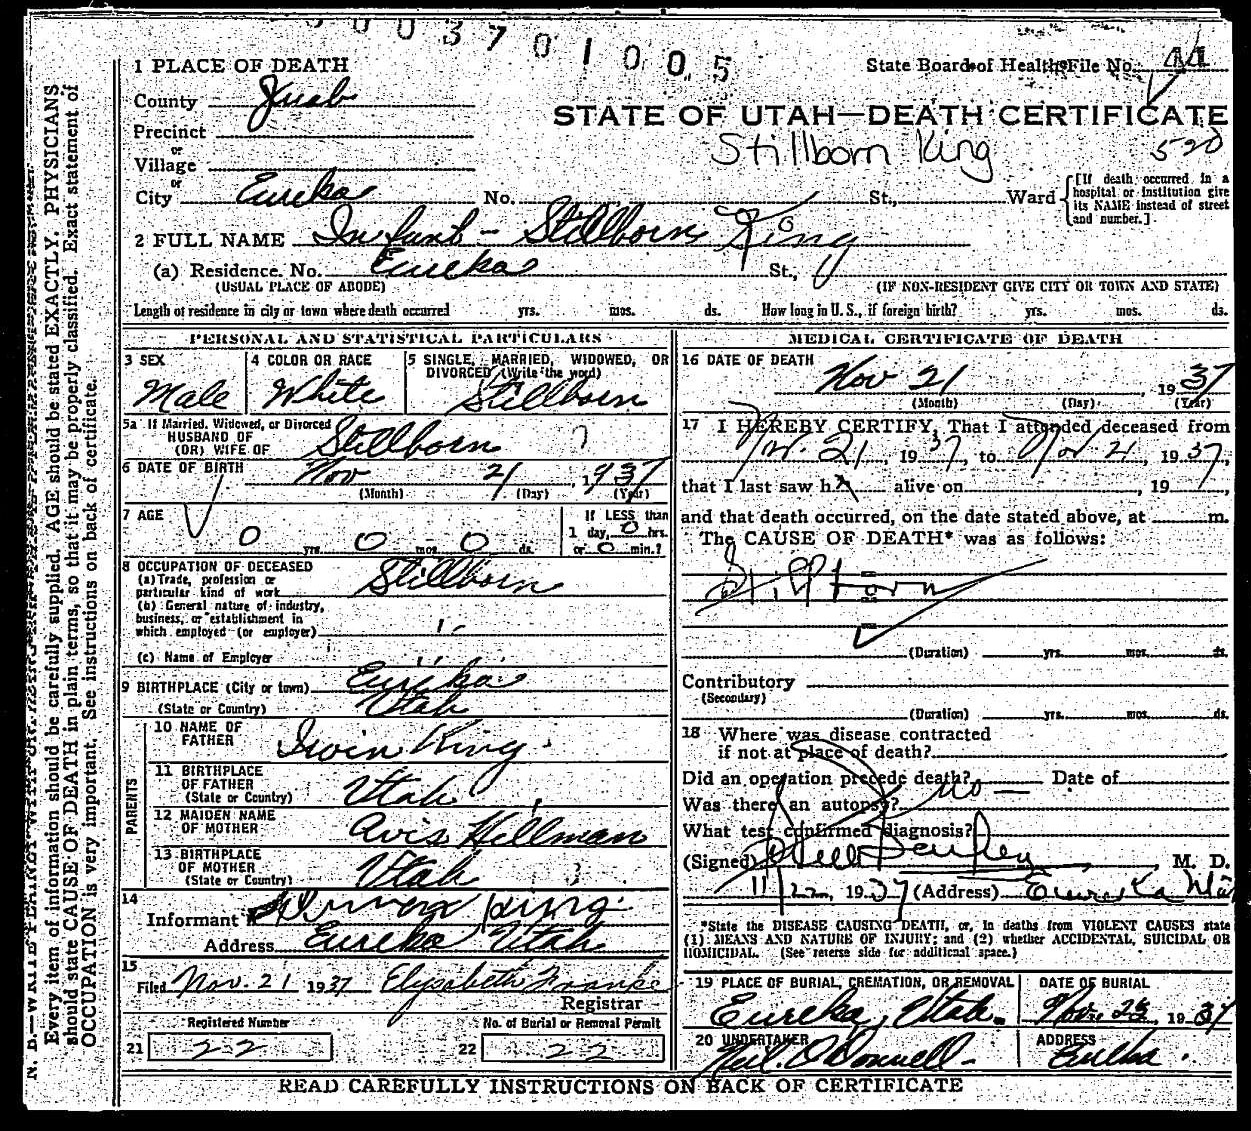 0 0 0 3 7 0 1 0 0 5
State Board of Health File No. 44
1 PLACE OF DEATH
County Juab
STATE OF UTAH—DEATH CERTIFICATE
Precinct
Stillborn King
520
or
Village
or
City Eureka No. St., Ward
[If death occurred in a hospital or institution give its NAME instead of street and number.]
2 FULL NAME Infant - Stillborn King
(a) Residence. No. Eureka St.,
(USUAL PLACE OF ABODE) (IF NON-RESIDENT GIVE CITY OR TOWN AND STATE)
Length of residence in city or town where death occurred yrs. mos. ds. How long in U. S., if foreign birth? yrs. mos. ds.
PERSONAL AND STATISTICAL PARTICULARS
3 SEX
Male
4 COLOR OR RACE
White
5 SINGLE, MARRIED, WIDOWED, OR
DIVORCED (Write the word)
Stillborn
5a If Married, Widowed, or Divorced
HUSBAND OF
(OR) WIFE OF Stillborn
6 DATE OF BIRTH Nov 21 1937
(Month) (Day) (Year)
7 AGE
0 yrs. 0 mos. 0 ds.
If LESS than
1 day, 0 hrs.
or 0 min.?
8 OCCUPATION OF DECEASED
(a) Trade, profession or
particular kind of work Stillborn
(b) General nature of industry,
business, or establishment in
which employed (or employer)
(c) Name of Employer
9 BIRTHPLACE (City or town) Eureka
(State or Country) Utah
PARENTS
10 NAME OF
FATHER Irvin King
11 BIRTHPLACE
OF FATHER
(State or Country) Utah
12 MAIDEN NAME
OF MOTHER Avis Hillman
13 BIRTHPLACE
OF MOTHER
(State or Country) Utah
14
Informant King
Address Eureka Utah
15
Filed Nov. 21 1937 Elysabeth Franks
Registrar
Registered Number
21 22
No. of Burial or Removal Permit
22 22
MEDICAL CERTIFICATE OF DEATH
16 DATE OF DEATH
Nov 21 1937
(Month) (Day) (Year)
17 I HEREBY CERTIFY, That I attended deceased from
Nov. 21, 1937, to Nov 21, 1937,
that I last saw h alive on , 19 ,
and that death occurred, on the date stated above, at m.
The CAUSE OF DEATH* was as follows:
Stillborn
(Duration) yrs. mos. ds.
Contributory
(Secondary)
(Duration) yrs. mos. ds.
18 Where was disease contracted
if not at place of death?
Did an operation precede death? no Date of
Was there an autopsy?
What test confirmed diagnosis?
(Signed) M. D.
11/22, 1937 (Address) Eureka
*State the DISEASE CAUSING DEATH, or, in deaths from VIOLENT CAUSES state
(1) MEANS AND NATURE OF INJURY; and (2) whether ACCIDENTAL, SUICIDAL OR
HOMICIDAL. (See reverse side for additional space.)
19 PLACE OF BURIAL, CREMATION, OR REMOVAL
Eureka, Utah.
DATE OF BURIAL
Nov. 1937
20 UNDERTAKER
O'Donnell
ADDRESS
Eureka
READ CAREFULLY INSTRUCTIONS ON BACK OF CERTIFICATE
Every item of information should be carefully supplied. AGE should be stated EXACTLY. PHYSICIANS
should state CAUSE OF DEATH in plain terms, so that it may be properly classified. Exact statement of
OCCUPATION is very important. See instructions on back of certificate.